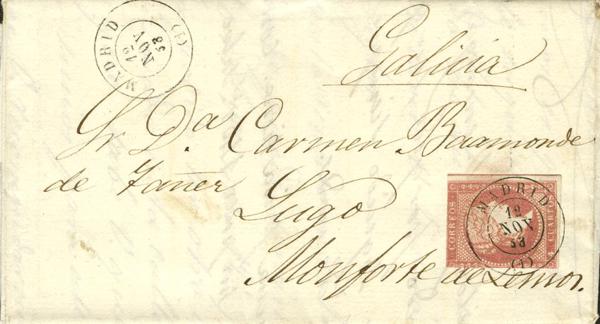 MADRID
12
NOV
58
(1)
Galicia
Sr. Da. Carmen Baamonde
de Yañez
Lugo
Monforte de Lemos.
CORREOS
CUARTOS
MADRID
12
NOV
58
(1)